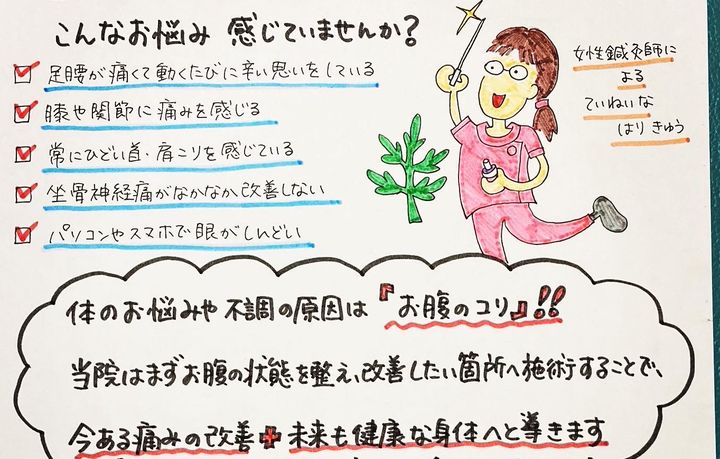 こんなお悩み 感じていませんか?
足腰が痛くて動くたびに辛い思いをしている
膝や関節に痛みを感じる
常にひどい首・肩こりを感じている
坐骨神経痛がなかなか改善しない
パソコンやスマホで眼がしんどい
女性鍼灸師に
よる
ていねいな
はりきゅう
体のお悩みや不調の原因は『お腹のコリ』!!
当院はまずお腹の状態を整え、改善したい箇所へ施術することで、
今ある痛みの改善+未来も健康な身体へと導きます